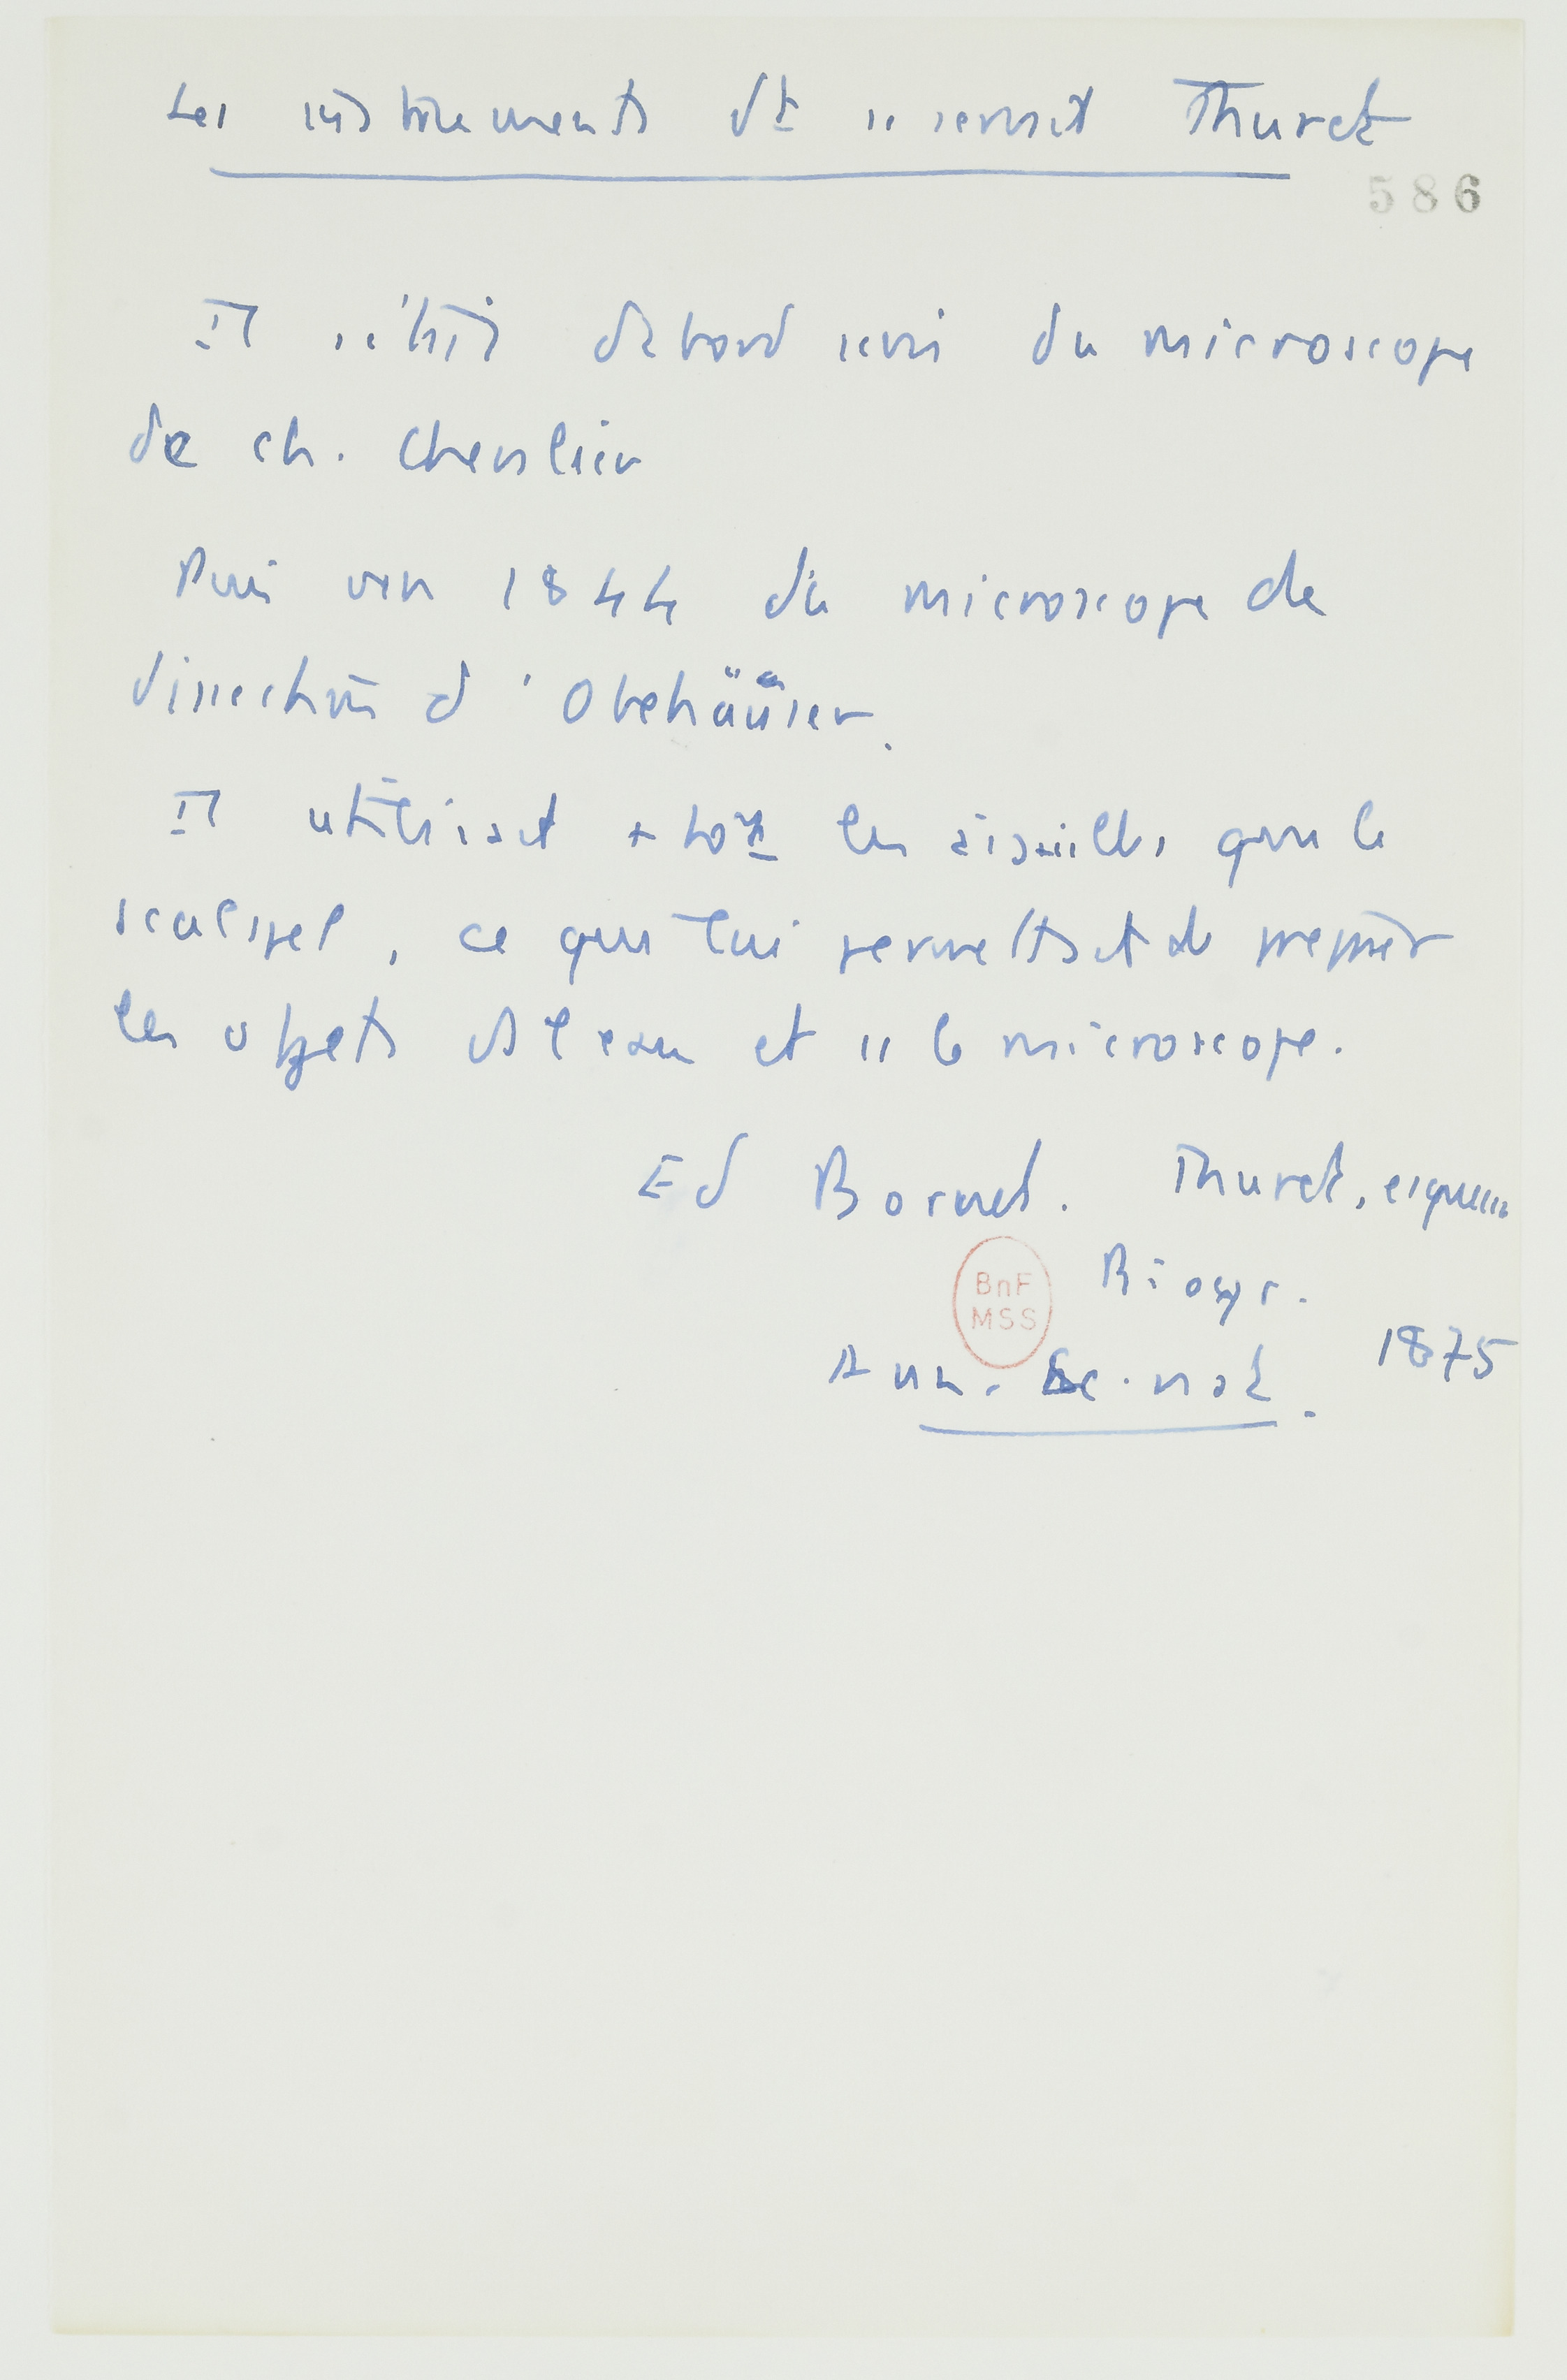 Les instruments dt se servait Thuret
586
Il s'était d'abord servi du microscope
de Ch. Chevalier
Puis vers 1844 du microscope de
dissection d'Obehäüser.
Il utilisait + tôt les aiguilles que le
scalpel, ce qui lui permettait de préparer
les objets ds l'eau et ss le microscope.
Ed Bornet. Thuret, esquiss
Biogr.
BnF
MSS
Ann. Sc. nat. 1875